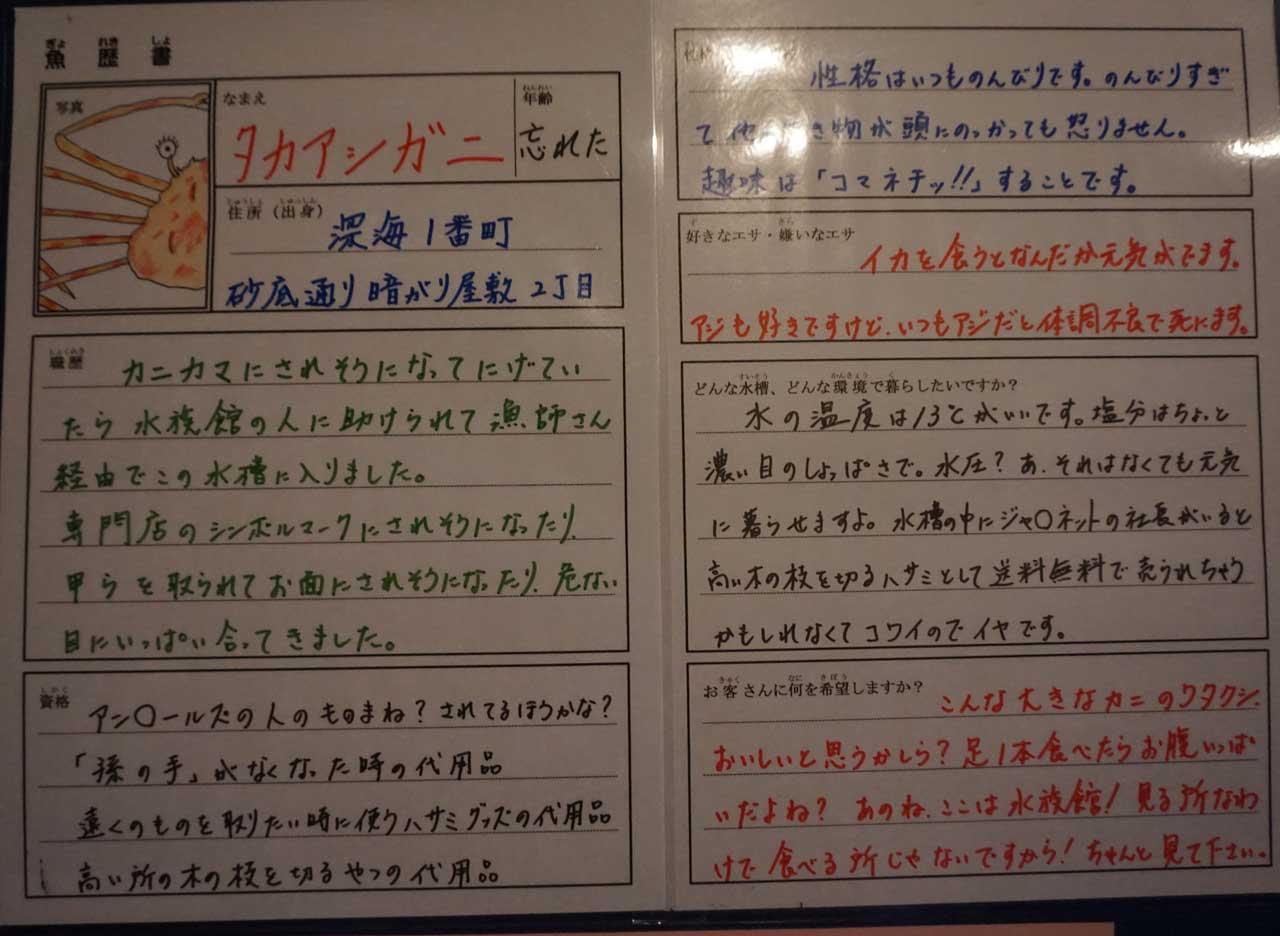 魚歴書
写真
なまえ
タカアシガニ
年齢
忘れた
住所（出身）
深海1番町
砂底通り暗がり屋敷2丁目
職歴
カニカマにされそうになってにげてい
たら水族館の人に助けられて漁師さん
経由でこの水槽に入りました。
専門店のシンボルマークにされそうになったり、
甲らを取られてお面にされそうになったり、危ない
目にいっぱい合ってきました。
資格
アン〇ールズの人のものまね？されてるほうかな？
「孫の手」がなくなった時の代用品
遠くのものを取りたい時に使うハサミグッズの代用品
高い所の木の枝を切るやつの代用品
性格はいつものんびりです。のんびりすぎ
て他の生き物が頭にのっかっても怒りません。
趣味は「コマネチッ!!」することです。
好きなエサ・嫌いなエサ
イカを食うとなんだか元気がでます。
アジも好きですけど、いつもアジだと体調不良で死にます。
どんな水槽、どんな環境で暮らしたいですか？
水の温度は13℃がいいです。塩分はちょっと
濃い目のしょっぱさで。水圧？あ、それはなくても元気
に暮らせますよ。水槽の中にジャ〇ネットの社長がいると
高い木の枝を切るハサミとして送料無料で売られちゃう
かもしれなくてコワイのでイヤです。
お客さんに何を希望しますか？
こんな大きなカニのワタクシ、
おいしいと思うかしら？足1本食べたらお腹いっぱ
いだよね？あのね、ここは水族館！見る所なわ
けで食べる所じゃないですから！ちゃんと見て下さい。